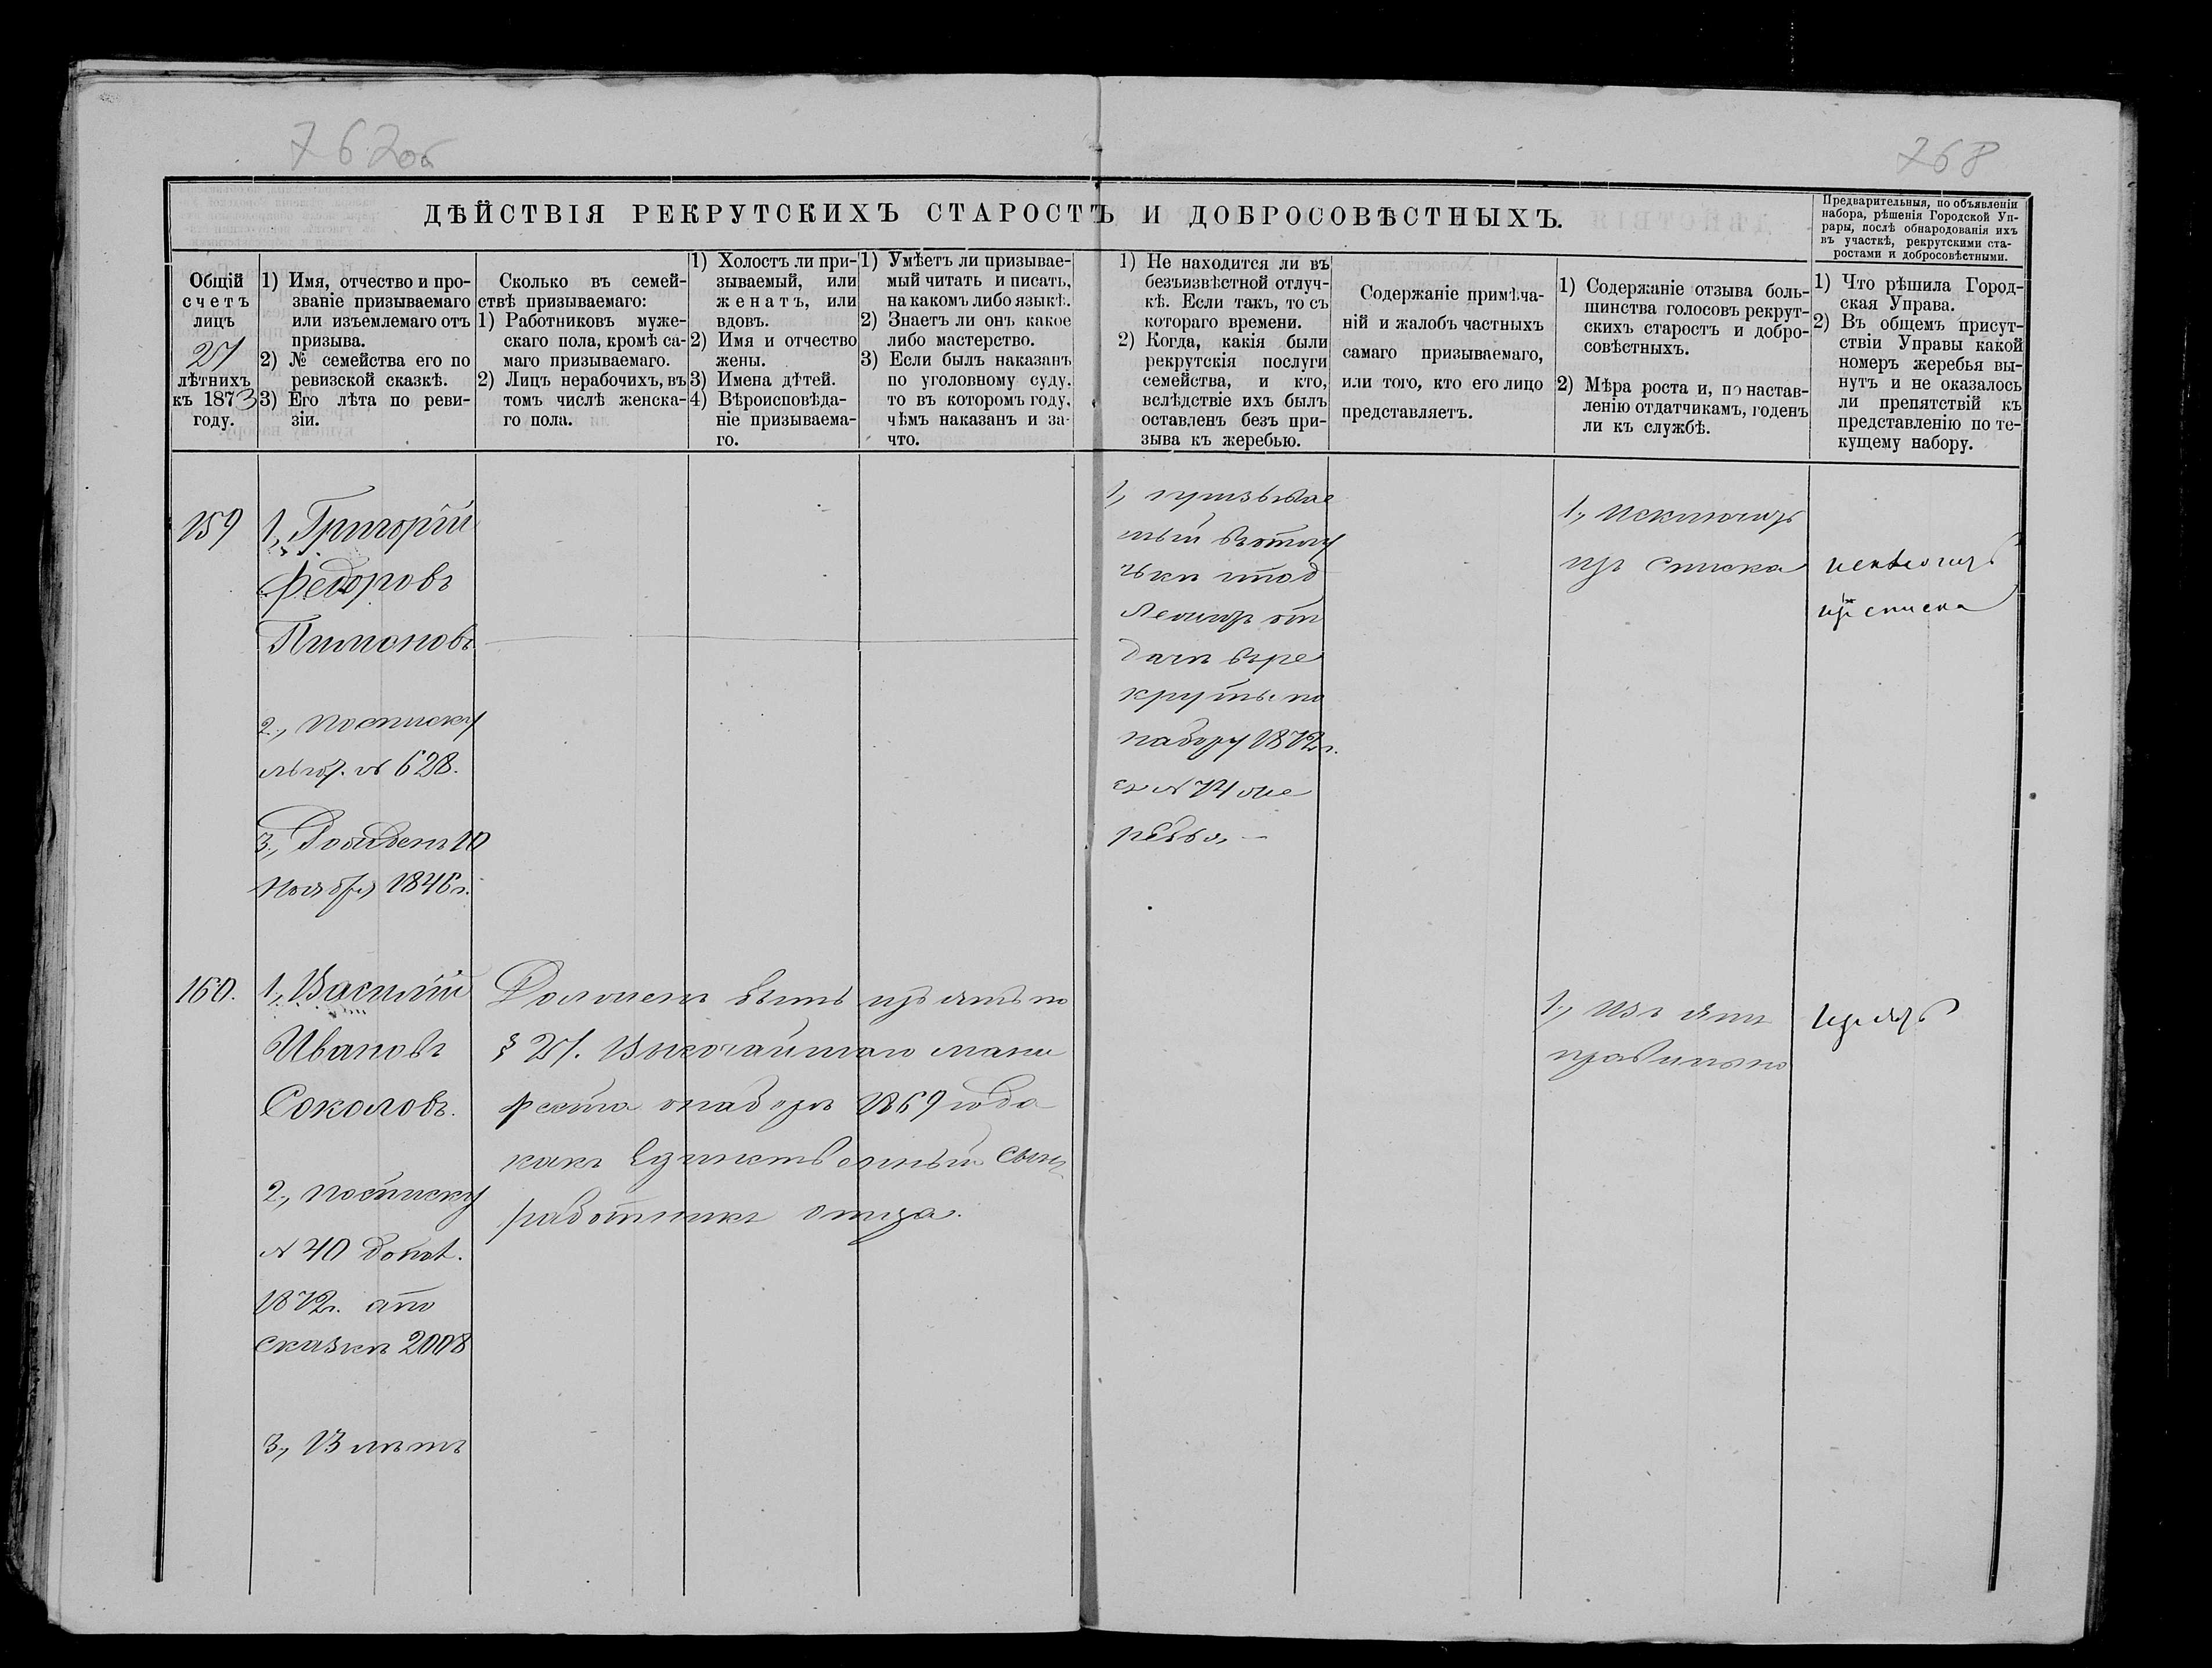 762об
768
ДѢЙСТВІЯ РЕКРУТСКИХЪ СТАРОСТЪ И ДОБРОСОВѢСТНЫХЪ.
Предварительныя, по объявленіи
набора, рѣшенія Городской Уп-
рары, послѣ обнародованія ихъ
въ участкѣ, рекрутскими ста-
ростами и добросовѣстными.
Общій
счетъ
лицъ
27
лѣтнихъ
къ 1873
году.
1) Имя, отчество и про-
званіе призываемаго
или изъемлемаго отъ
призыва.
2) № семейства его по
ревизской сказкѣ.
3) Его лѣта по реви-
зіи.
Сколько въ семей-
ствѣ призываемаго:
1) Работниковъ муже-
скаго пола, кромѣ са-
маго призываемаго.
2) Лицъ нерабочихъ, въ
томъ числѣ женска-
го пола.
1) Холостъ ли при-
зываемый, или
женатъ, или
вдовъ.
2) Имя и отчество
жены.
3) Имена дѣтей.
4) Вѣроисповѣда-
ніе призываема-
го.
1) Умѣетъ ли призывае-
мый читать и писать,
на какомъ либо языкѣ.
2) Знаетъ ли онъ какое
либо мастерство.
3) Если былъ наказанъ
по уголовному суду,
то въ которомъ году,
чѣмъ наказанъ и за-
что.
1) Не находится ли въ
безъизвѣстной отлуч-
кѣ. Если такъ, то съ
котораго времени.
2) Когда, какія были
рекрутскія послуги
семейства, и кто,
вслѣдствіе ихъ былъ
оставленъ безъ при-
зыва къ жеребью.
Содержаніе примѣча-
ній и жалобъ частныхъ
самаго призываемаго,
или того, кто его лицо
представляетъ.
1) Содержаніе отзыва боль-
шинства голосовъ рекрут-
скихъ старостъ и добро-
совѣстныхъ.
2) Мѣра роста и, по настав-
ленію отдатчикамъ, годенъ
ли къ службѣ.
1) Что рѣшила Город-
ская Управа.
2) Въ общемъ присут-
ствіи Управы какой
номеръ жеребья вы-
нутъ и не оказалось
ли препятствій къ
представленію по те-
кущему набору.
159
1, Григорій
Федоровъ
Пимоновъ
2., по списку
№ 628.
3.,
Ноября 1846 г.
1, призывае
мый въ отлу
чкѣ подл
лежитъ от
дачѣ въ ре
круты по
набору 1872 г.
съ № 74 же
ребья —
1., Исключить
изъ списка
исключить
изъ списка
160.
1., Василій
Ивановъ
Соколовъ.
2., по списку
№ 40 допол.
1872 г. а по
сказкѣ 2008
3, 13 лѣтъ
Долженъ быть изъятъ по
§ 27. Высочайшаго мани
феста о наборѣ 1869 года
какъ единственный сынъ
работникъ отца.
1., Изъятъ
правильно
изъять